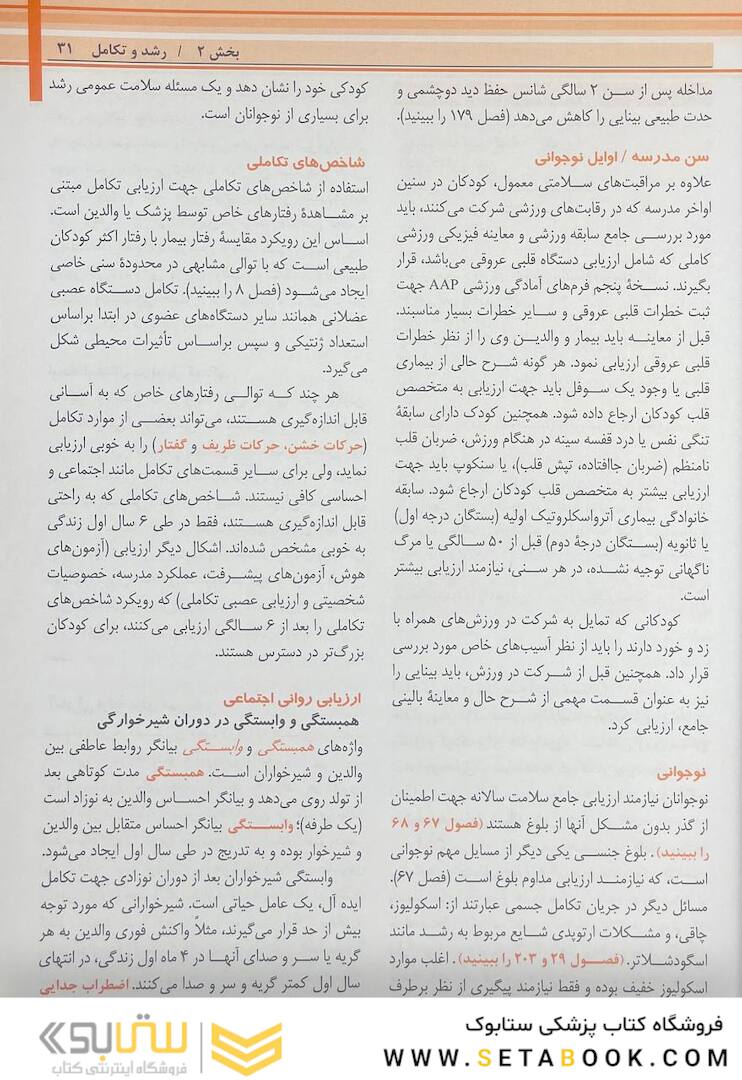 بخش ۲ / رشد و تکامل ۳۱
مداخله پس از سن ۲ سالگی شانس حفظ دید دوچشمی و
حدت طبیعی بینایی را کاهش می‌دهد (فصل ۱۷۹ را ببینید).
سن مدرسه / اوایل نوجوانی
علاوه بر مراقبت‌های سلامتی معمول، کودکان در سنین
اواخر مدرسه که در رقابت‌های ورزشی شرکت می‌کنند، باید
مورد بررسی جامع سابقه ورزشی و معاینه فیزیکی ورزشی
کاملی که شامل ارزیابی دستگاه قلبی عروقی می‌باشد، قرار
بگیرند. نسخهٔ پنجم فرم‌های آمادگی ورزشی AAP جهت
ثبت خطرات قلبی عروقی و سایر خطرات بسیار مناسبند.
قبل از معاینه باید بیمار و والدین وی را از نظر خطرات
قلبی عروقی ارزیابی نمود. هر گونه شرح حالی از بیماری
قلبی یا وجود یک سوفل باید جهت ارزیابی به متخصص
قلب کودکان ارجاع داده شود. همچنین کودک دارای سابقهٔ
تنگی نفس یا درد قفسه سینه در هنگام ورزش، ضربان قلب
نامنظم (ضربان جاافتاده، تپش قلب)، یا سنکوپ باید جهت
ارزیابی بیشتر به متخصص قلب کودکان ارجاع شود. سابقه
خانوادگی بیماری آترواسکلروتیک اولیه (بستگان درجه اول)
یا ثانویه (بستگان درجهٔ دوم) قبل از ۵۰ سالگی یا مرگ
ناگهانی توجیه نشده، در هر سنی، نیازمند ارزیابی بیشتر
است.
کودکانی که تمایل به شرکت در ورزش‌های همراه با
زد و خورد دارند را باید از نظر آسیب‌های خاص مورد بررسی
قرار داد. همچنین قبل از شرکت در ورزش، باید بینایی را
نیز به عنوان قسمت مهمی از شرح حال و معاینهٔ بالینی
جامع، ارزیابی کرد.
نوجوانی
نوجوانان نیازمند ارزیابی جامع سلامت سالانه جهت اطمینان
از گذر بدون مشکل آنها از بلوغ هستند (فصول ۶۷ و ۶۸
را ببینید). بلوغ جنسی یکی دیگر از مسایل مهم نوجوانی
است، که نیازمند ارزیابی مداوم بلوغ است (فصل ۶۷).
مسائل دیگر در جریان تکامل جسمی عبارتند از: اسکولیوز،
چاقی، و مشکلات ارتوپدی شایع مربوط به رشد مانند
اسگودشلاتر. (فصول ۲۹ و ۲۰۳ را ببینید). اغلب موارد
اسکولیوز خفیف بوده و فقط نیازمند پیگیری از نظر برطرف
کودکی خود را نشان دهد و یک مسئله سلامت عمومی رشد
برای بسیاری از نوجوانان است.
شاخص‌های تکاملی
استفاده از شاخص‌های تکاملی جهت ارزیابی تکامل مبتنی
بر مشاهدهٔ رفتارهای خاص توسط پزشک یا والدین است.
اساس این رویکرد مقایسهٔ رفتار بیمار با رفتار اکثر کودکان
طبیعی است که با توالی مشابهی در محدودهٔ سنی خاصی
ایجاد می‌شود (فصل ۸ را ببینید). تکامل دستگاه عصبی
عضلانی همانند سایر دستگاه‌های عضوی در ابتدا براساس
استعداد ژنتیکی و سپس براساس تأثیرات محیطی شکل
می‌گیرد.
هر چند که توالی رفتارهای خاص که به آسانی
قابل اندازه‌گیری هستند، می‌تواند بعضی از موارد تکامل
(حرکات خشن، حرکات ظریف و گفتار) را به خوبی ارزیابی
نماید، ولی برای سایر قسمت‌های تکامل مانند اجتماعی و
احساسی کافی نیستند. شاخص‌های تکاملی که به راحتی
قابل اندازه‌گیری هستند، فقط در طی ۶ سال اول زندگی
به خوبی مشخص شده‌اند. اشکال دیگر ارزیابی (آزمون‌های
هوش، آزمون‌های پیشرفت، عملکرد مدرسه، خصوصیات
شخصیتی و ارزیابی عصبی تکاملی) که رویکرد شاخص‌های
تکاملی را بعد از ۶ سالگی ارزیابی می‌کنند، برای کودکان
بزرگ‌تر در دسترس هستند.
ارزیابی روانی اجتماعی
همبستگی و وابستگی در دوران شیرخوارگی
واژه‌های همبستگی و وابستگی بیانگر روابط عاطفی بین
والدین و شیرخواران است. همبستگی مدت کوتاهی بعد
از تولد روی می‌دهد و بیانگر احساس والدین به نوزاد است
(یک طرفه)؛ وابستگی بیانگر احساس متقابل بین والدین
و شیرخوار بوده و به تدریج در طی سال اول ایجاد می‌شود.
وابستگی شیرخواران بعد از دوران نوزادی جهت تکامل
ایده آل، یک عامل حیاتی است. شیرخوارانی که مورد توجه
بیش از حد قرار می‌گیرند، مثلاً واکنش فوری والدین به هر
گریه یا سر و صدای آنها در ۴ ماه اول زندگی، در انتهای
سال اول کمتر گریه و سر و صدا می‌کنند. اضطراب جدایی
فروشگاه کتاب پزشکی ستابوک
WWW.SETABOOK.COM
ستابوک
فروشگاه اینترنتی کتاب